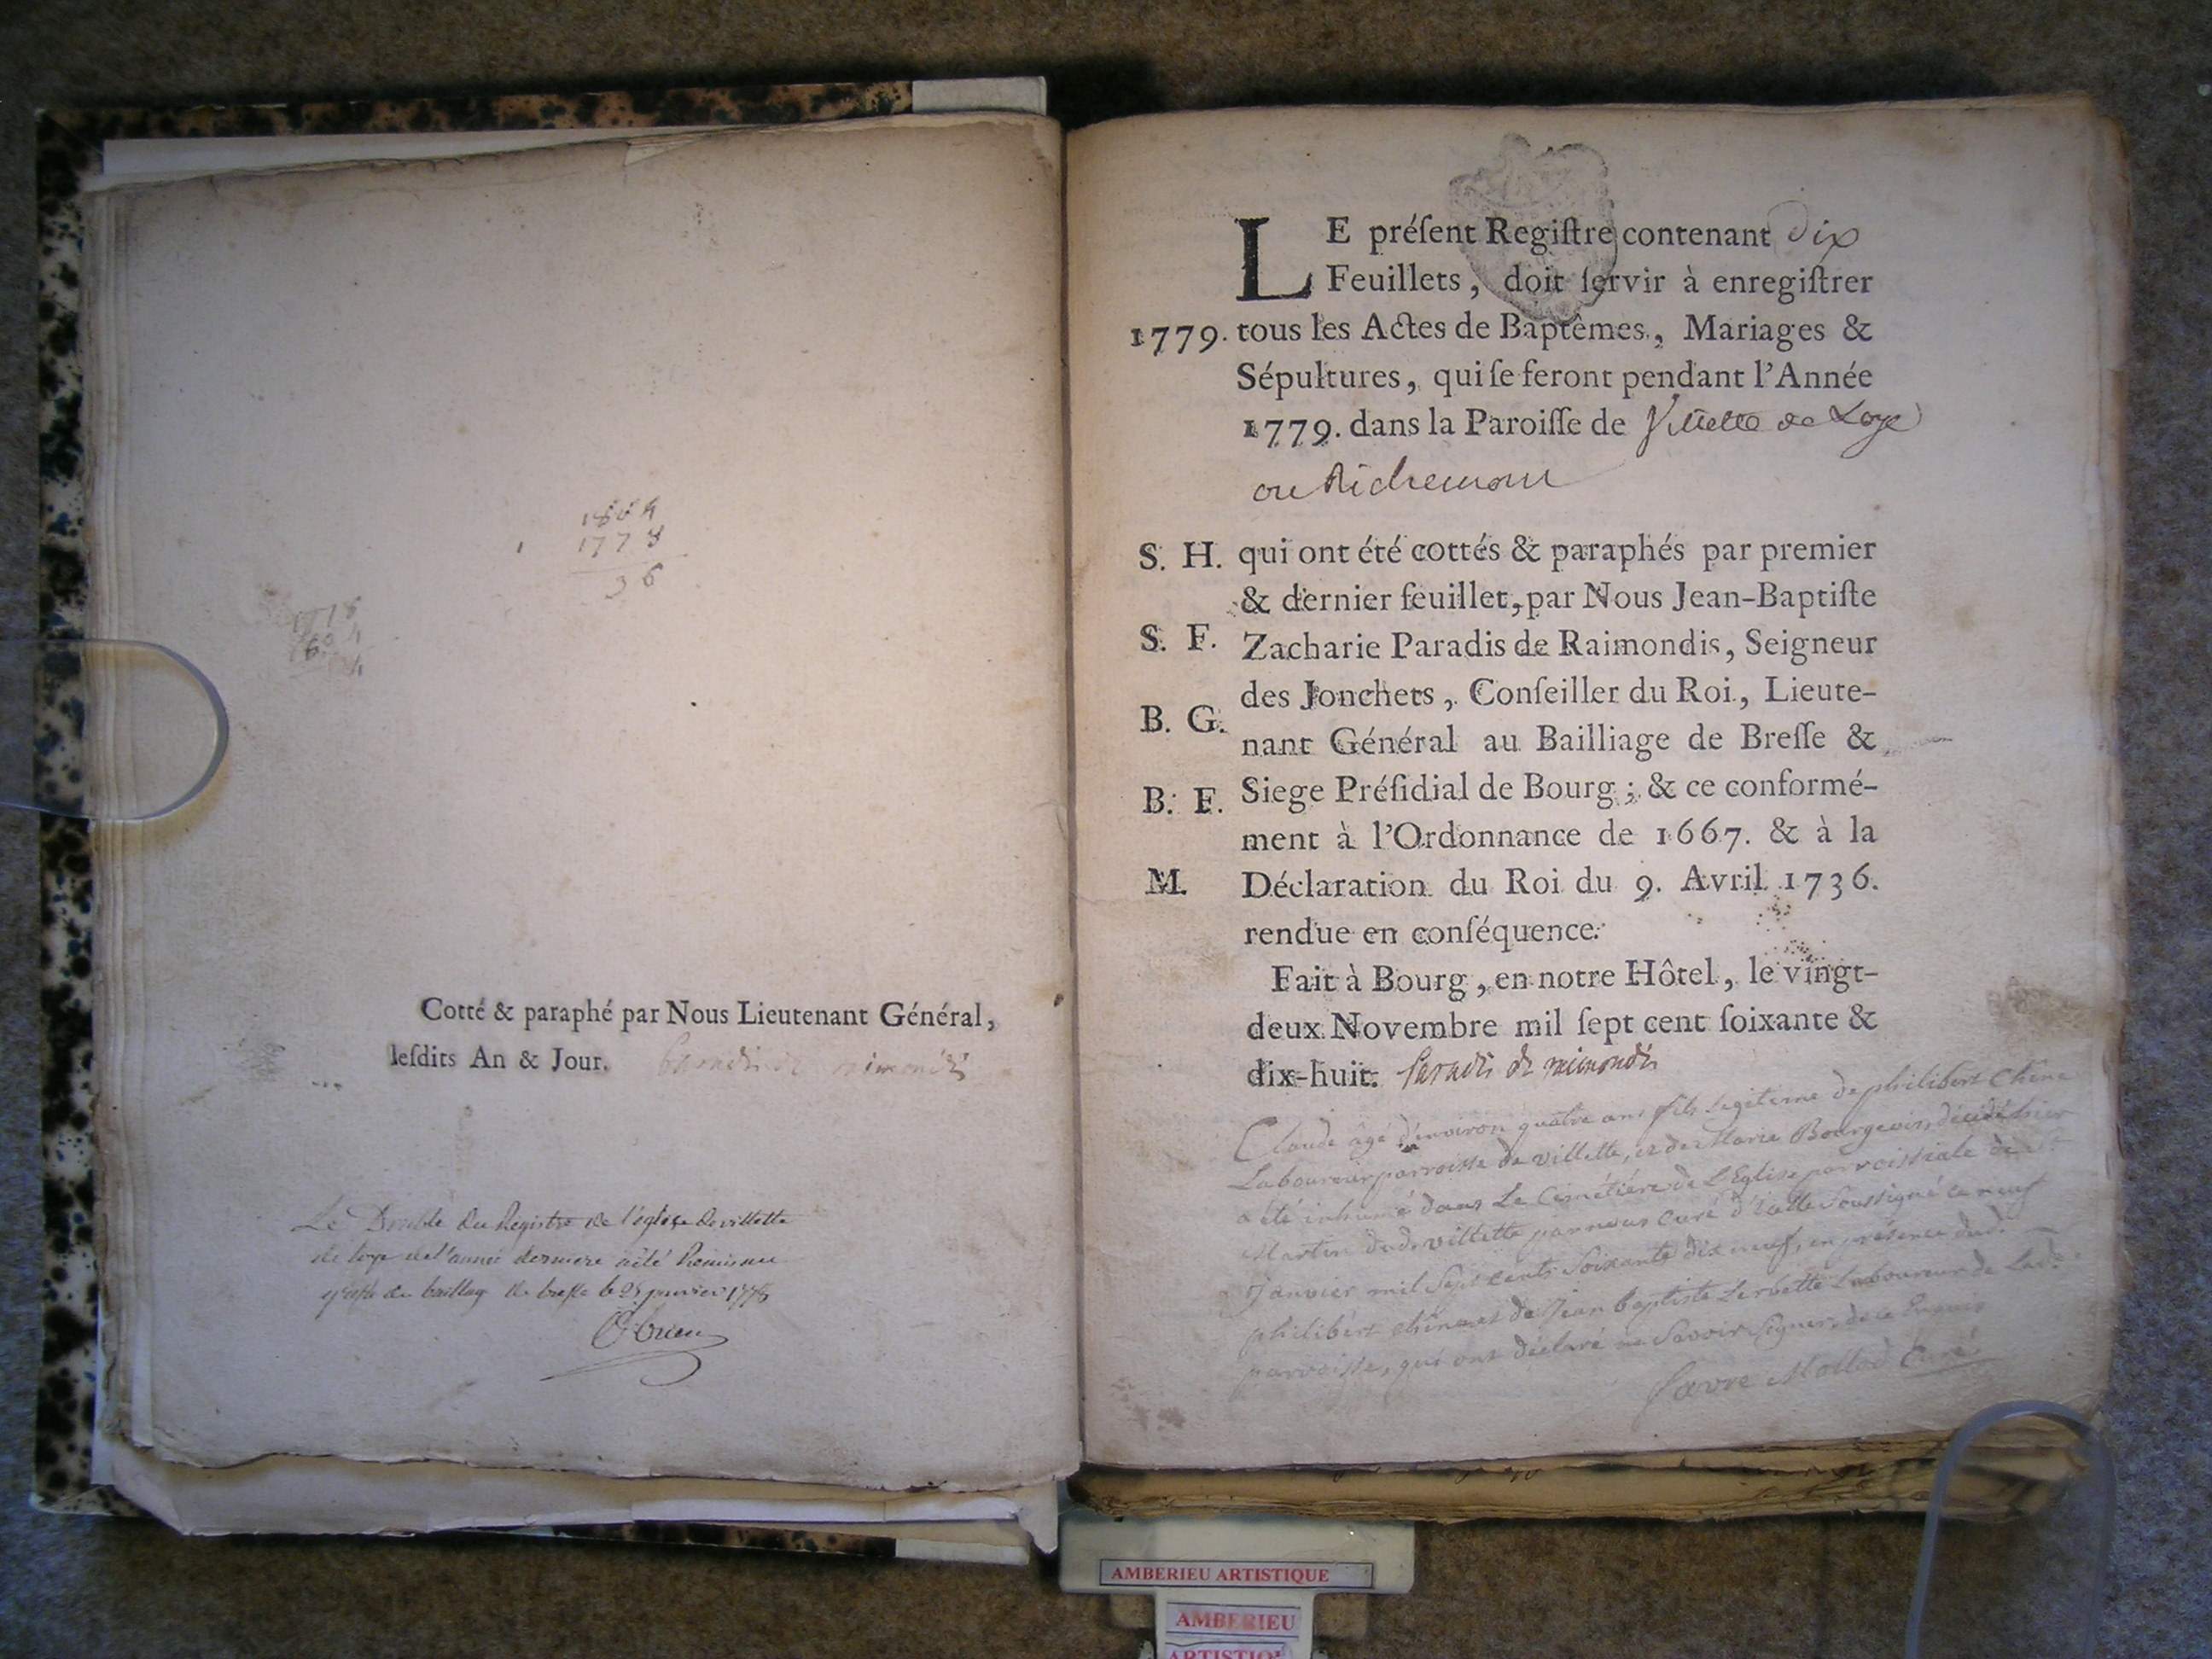 1804
1 1778
36
Cotté & paraphé par Nous Lieutenant Général,
leſdits An & Jour. Paradis de raimondis
Le Double du Registre de l'église de villette
de loye de l'année derniere a été Remis au
greffe du bailliage de bresse le 25 janvier 1778
LE préſent Regiſtre contenant dix
Feuillets, doit ſervir à enregiſtrer
1779. tous les Actes de Baptêmes, Mariages &
Sépultures, qui ſe feront pendant l'Année
1779. dans la Paroiſſe de Villette de Loye
ou Richemont
S. H. qui ont été cottés & paraphés par premier
& dernier feuillet, par Nous Jean-Baptiſte
S. F. Zacharie Paradis de Raimondis, Seigneur
des Jonchets, Conſeiller du Roi, Lieute-
B. G. nant Général au Bailliage de Breſſe &
B. F. Siege Préſidial de Bourg; & ce conformé-
ment à l'Ordonnance de 1667. & à la
M. Déclaration du Roi du 9. Avril 1736.
rendue en conſéquence.
Fait à Bourg, en notre Hôtel, le vingt-
deux Novembre mil ſept cent ſoixante &
dix-huit. Paradis de raimondis
Claude âgé d'environ quatre ans fils legitime de philibert Chêne
Laboureur parroisse de villette, et de Marie Bourgeois, décédé hier
a été inhumé dans Le Cimétiére de L'Eglise parroissiale de St
Martin dud. villette par nous Curé d'icelle Soussigné ce neuf
Janvier mil Sept cents Soixante dix neuf, en présence dud.
philibert chêne et de Jean baptiste Laboureur de Lad.
parroisse, qui ont déclaré ne Savoir Signer, de ce Enquis
favre Mollad Curé
AMBERIEU ARTISTIQUE
AMBERIEU
ARTISTIQUE